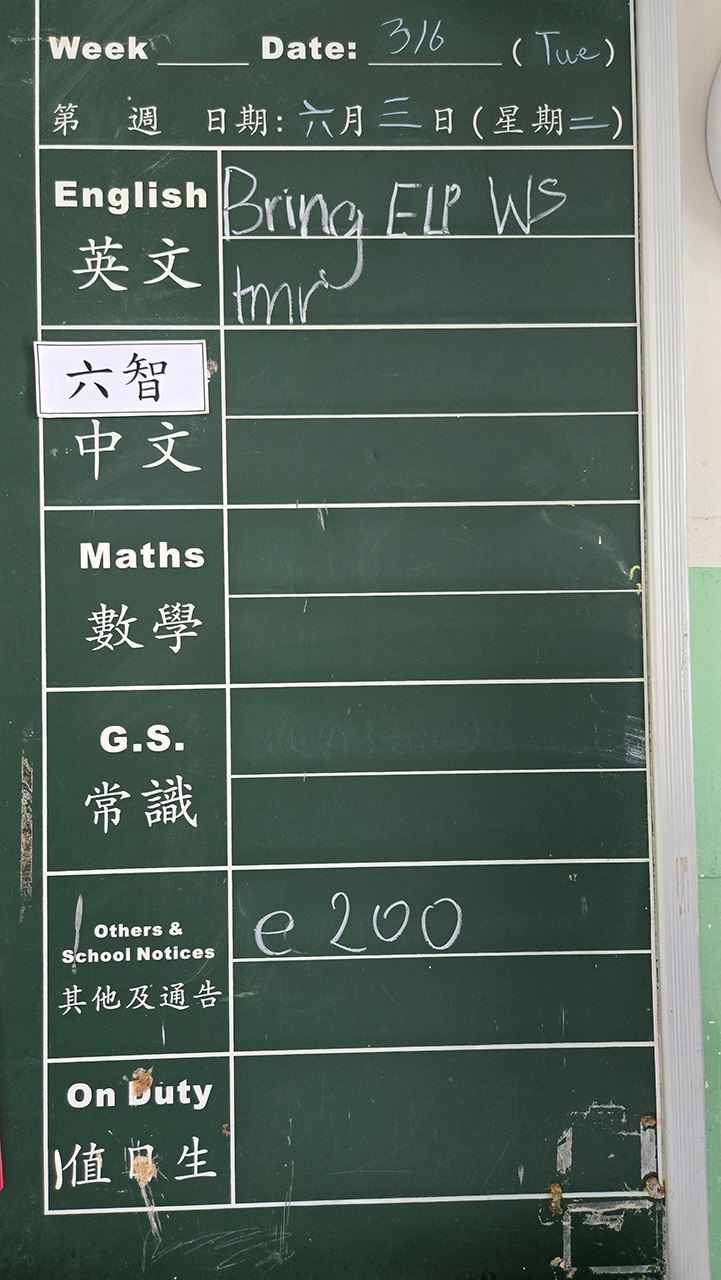 Week Date: 3/6 (Tue)
第 週 日期: 六月三日(星期二)
English Bring ELP WS
英文 tmr
六智
中文
Maths
數學
G.S.
常識
Others & e200
School Notices
其他及通告
On Duty
值日生